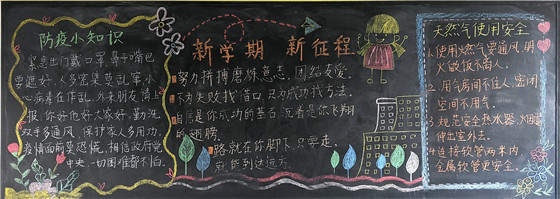 防疫小知识
紧急出门戴口罩,鼻子嘴巴
要遮好。人多密集莫乱窜,小
心病毒在作乱。外来朋友情上
报,你好他好大家好。勤洗
双手多通风,保护家人多用功。
疫情面前莫恐慌,相信政府党
中央,一切困难都不怕。
新学期 新征程
努力持搏磨你意志,团结友爱。
不为失败找借口,只为成功找方法。
自信是你成功的基石,沉着是你飞翔
的翅膀。
路就在你脚下,只要走,
就能到达远方。
天然气使用安全
1.使用天然气要通风,明
火做饭不离人。
2.用气房间不住人,密闭
空间不用气。
3.规范安全热水器,火烟囱
伸出室外去。
4.连接软管两米内
金属软管更安全。